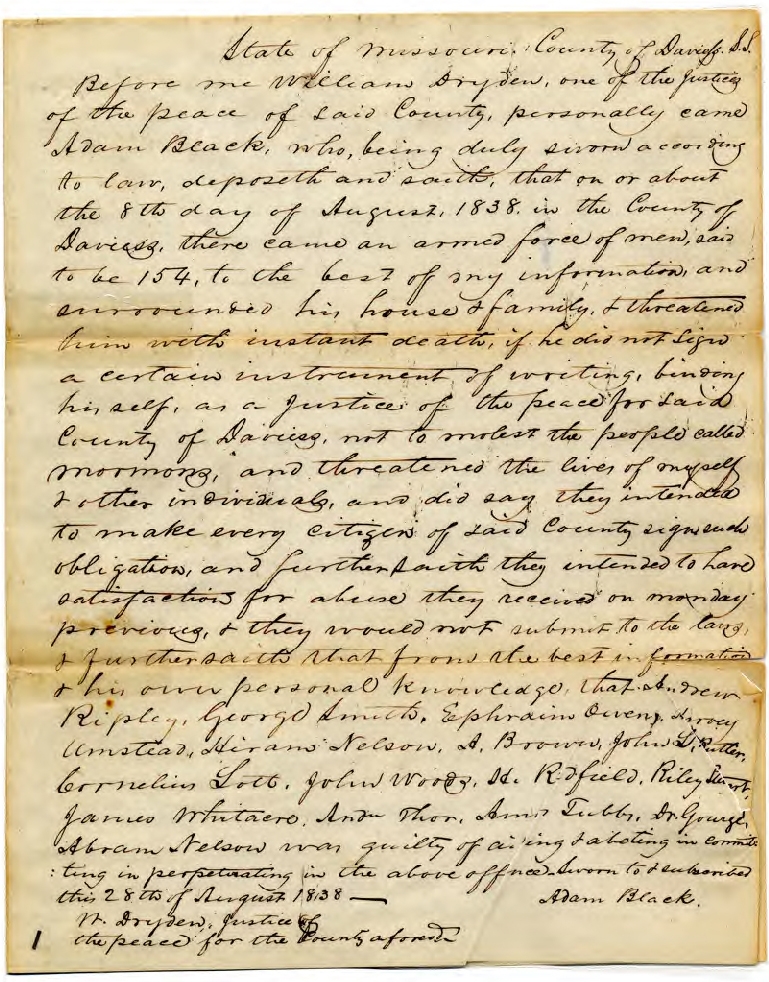 State of Missouri. County of Daviess. S.S.
Before me William Dryden, one of the justices
of the peace of said County, personally came
Adam Black, who, being duly sworn according
to law, deposeth and saith, that on or about
the 8th day of August, 1838. in the County of
Daviess, there came an armed force of men, said
to be 154, to the best of my information, and
surrounded his house & family, & threatened
him with instant death, if he did not sign
a certain instrument of writing, binding
his self, as a Justice of the peace for said
County of Daviess, not to molest the people called
mormons, and threatened the lives of myself
& other individuals, and did say they intended
to make every citizen of said County sign such
obligation, and further saith they intended to have
satisfaction for abuse they received on monday
previous, & they would not submit to the laws,
& further saith that from the best information
& his own personal knowledge, that Andrew
Ripley, George Smith, Ephraim Owens, Harvey
Umstead, Hiram Nelson, A. Brown, John L. Butler,
Cornelius Lott, John Woods, H. Redfield, Riley Stewart,
James Whitacre, Andw Thor, Amos Tubbs, Dr. Gourge,
Abram Nelson was guilty of aiding & abeting in commit
:ting in perpetrating in the above offence. Sworn to & subscribed
this 28th of August 1838 — Adam Black.
W. Dryden, Justice of
the peace for the County aforesd
1